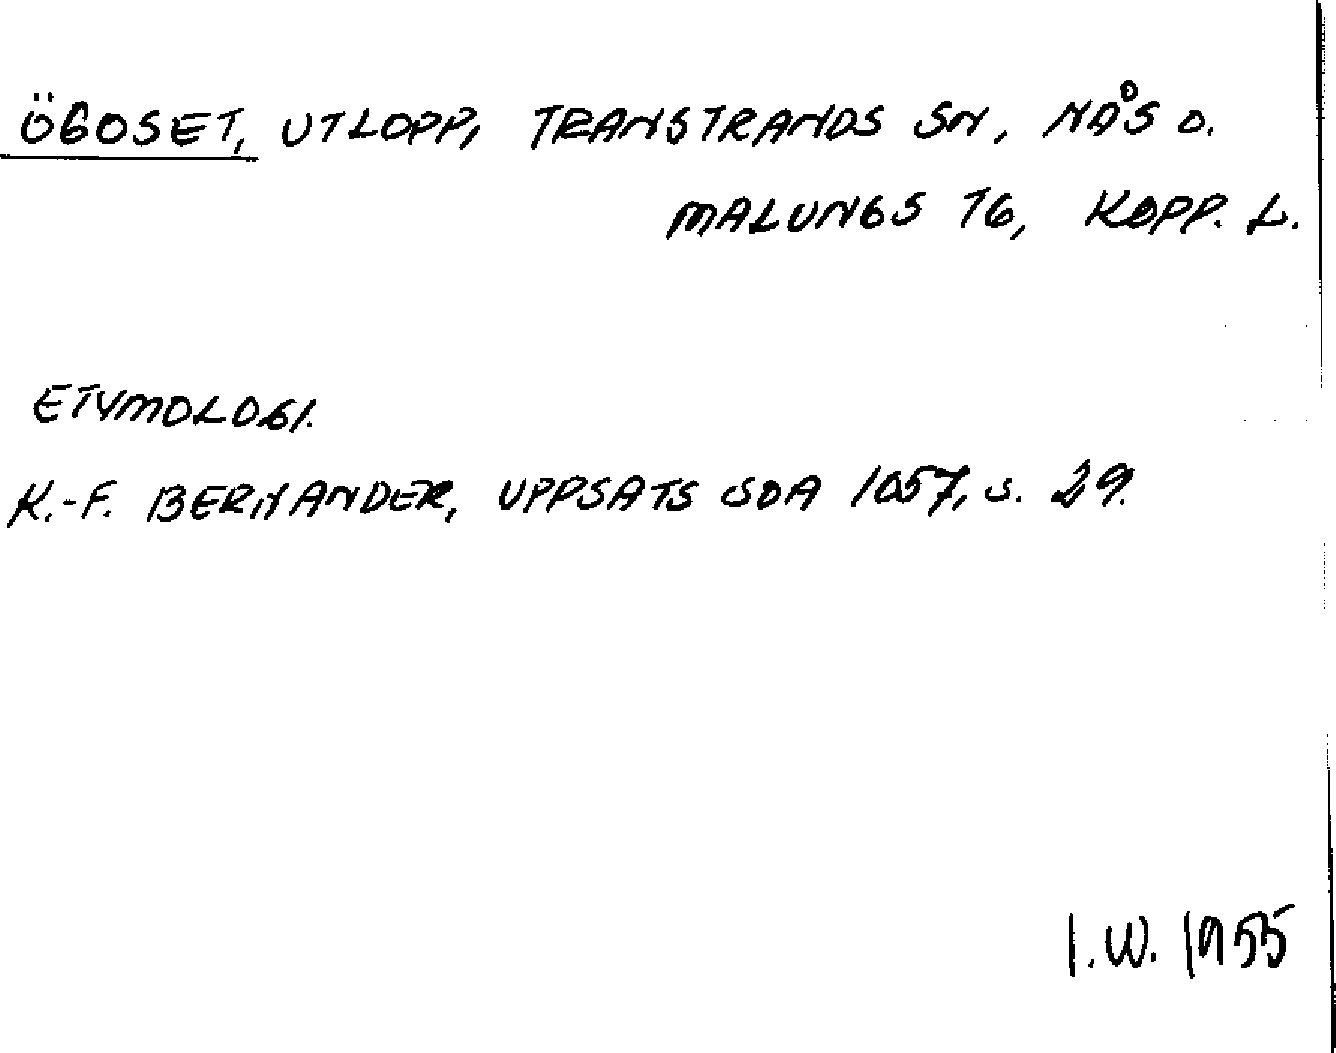 ÖGOSET, UTLOPP, TRANSTRANDS SN, NÅS D.
MALUNGS TG, KOPP. L.
ETYMOLOGI.
K.-F. BERNANDER, UPPSATS SOA 1057, S. 29.
I.W. 1955